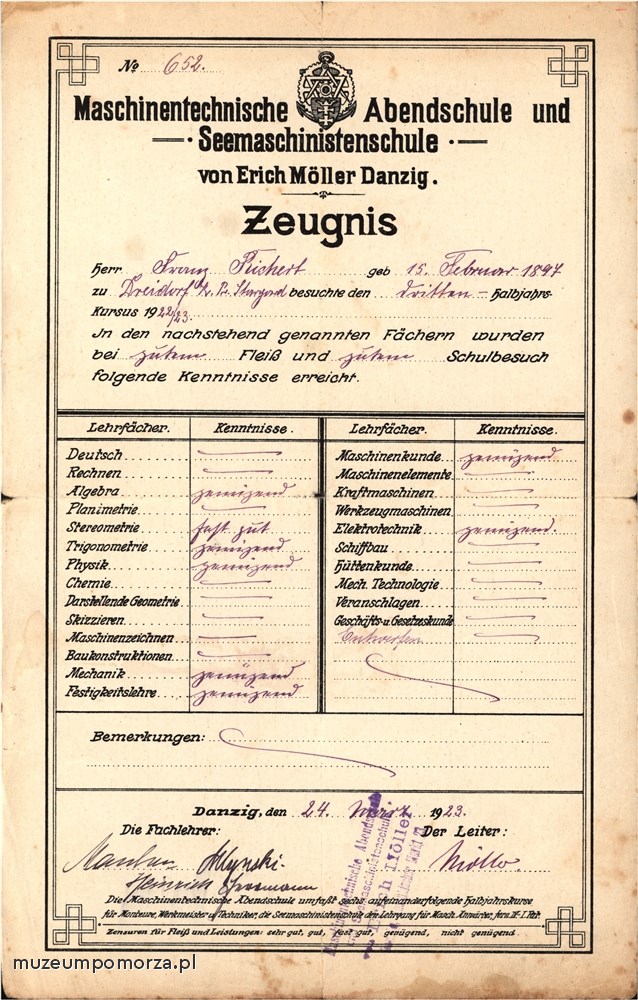 No 652.
Maschinentechnische Abendschule und
Seemaschinistenschule
von Erich Möller Danzig.
Zeugnis
Herr Franz geb 15. Februar 1897
zu Dreidorf Kr. Pr. Stargard besuchte den dritten - Halbjahrs-
Kursus 1922/23.
In den nachstehend genannten Fächern wurden
bei gutem Fleiß und gutem Schulbesuch
folgende Kenntnisse erreicht.
Lehrfächer. Kenntnisse. Lehrfächer. Kenntnisse.
Deutsch
Rechnen
Algebra genügend
Planimetrie
Stereometrie fast gut
Trigonometrie genügend
Physik genügend
Chemie
Darstellende Geometrie
Skizzieren
Maschinenzeichnen
Baukonstruktionen
Mechanik genügend
Festigkeitslehre genügend
Maschinenkunde genügend
Maschinenelemente
Kraftmaschinen
Werkzeugmaschinen
Elektrotechnik genügend.
Schiffbau
Hüttenkunde
Mech. Technologie
Veranschlagen
Geschäfts- u. Gesetzeskunde
Entwerfen
Bemerkungen:
Danzig, den 24. März 1923.
Die Fachlehrer: Der Leiter:
Möller.
Heinrich
Die Maschinentechnische Abendschule umfaßt sechs aufeinanderfolgende Halbjahrskurse
für Monteure, Werkmeister u. Techniker, die Seemaschinistenschule den Lehrgang für Masch. Anwärter, fern. IV-I. Pat.
Zensuren für Fleiß und Leistungen: sehr gut, gut, fast gut, genügend, nicht genügend
Maschinentechnische Abendschule
u. Seemaschinistenschule
Erich Möller
muzeumpomorza.pl